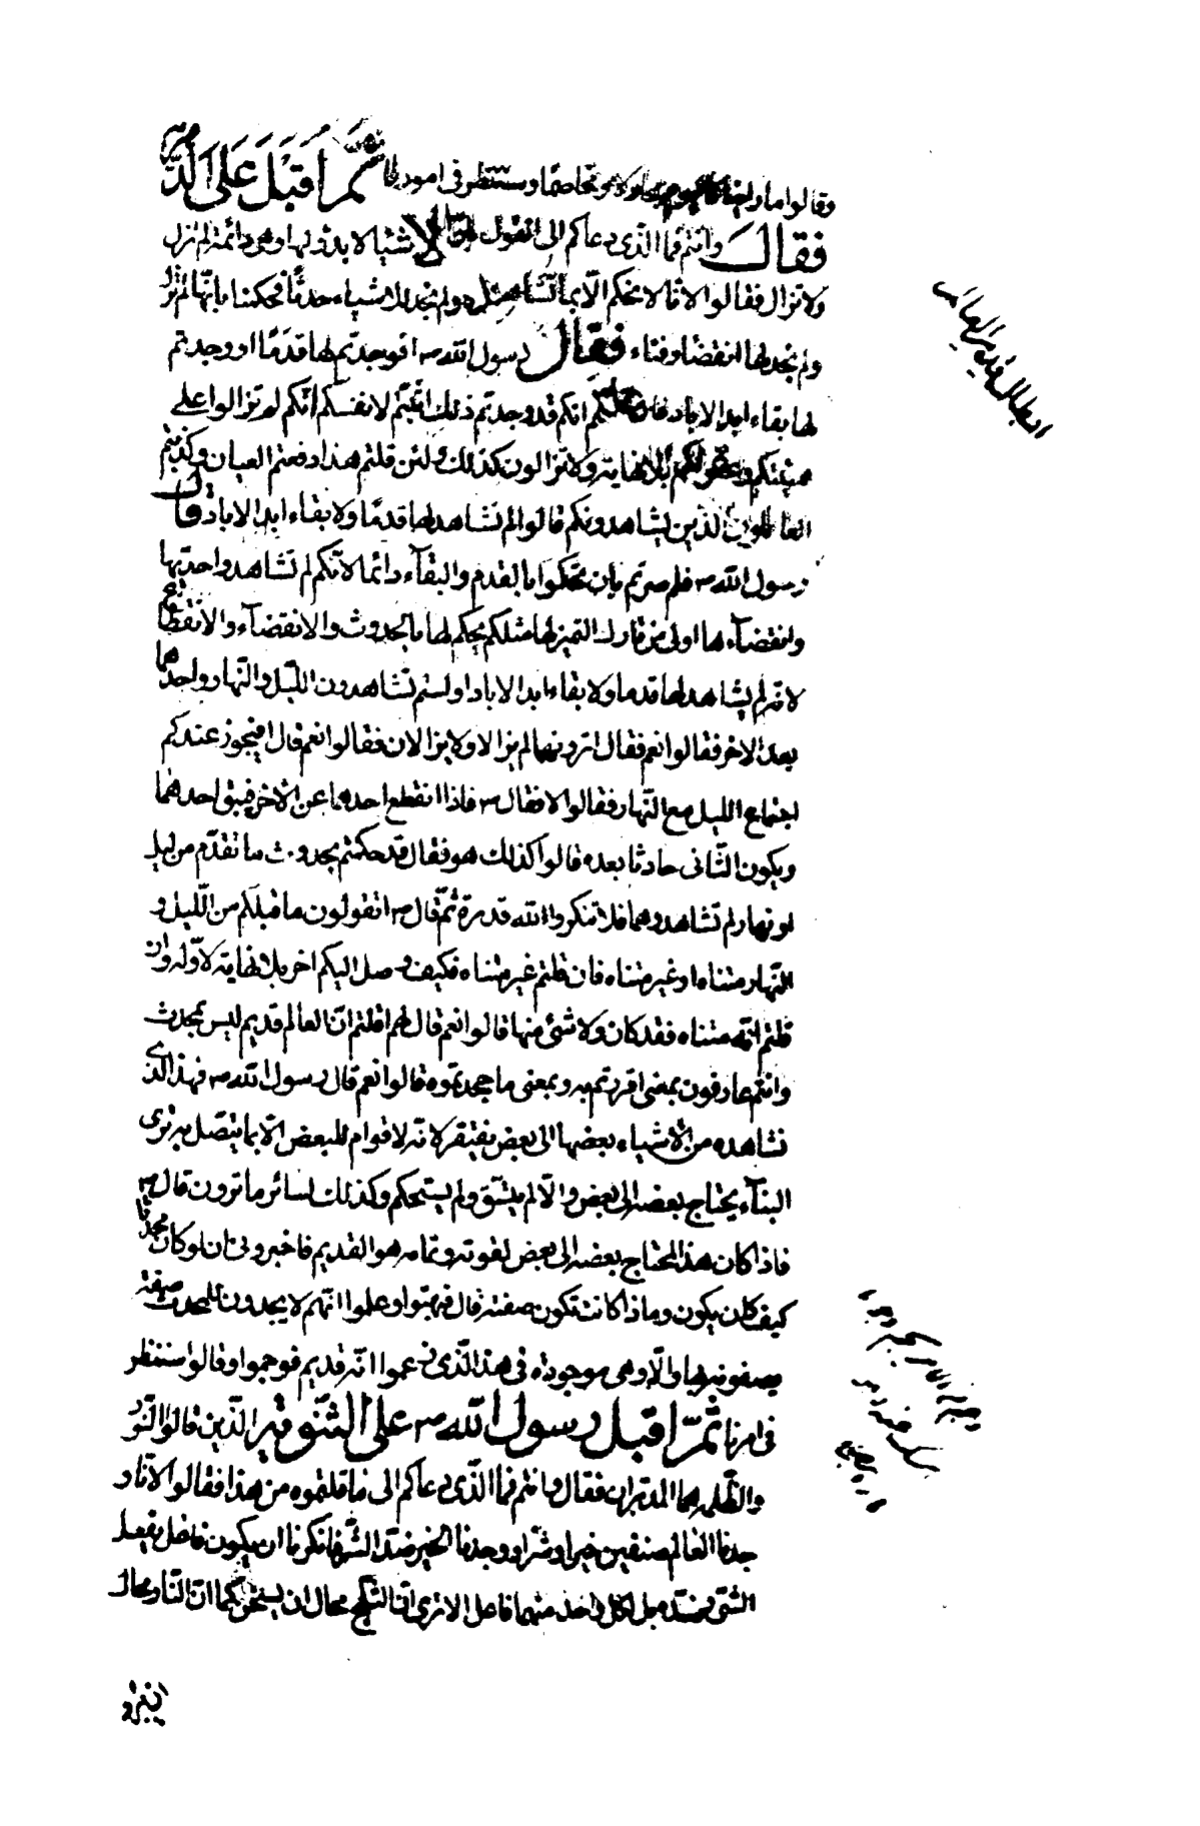 وقالوا ما راينا كاليوم مجادلا ولا مخاصما وسننظر في امورنا ثم اقبل على الدهرية
فقال وانتم فما الذي دعاكم الى القول بان الاشياء لا بدؤ لها وهي دائمة لم تزل
ولا تزال فقالوا لانا لا نحكم الا بما نشاهد ولم نجد للاشياء حدثا فحكمنا بانها لم تزل
ولم نجد لها انقضا وفناء فقال رسول الله ص افوجدتم لها قدما او وجدتم
لها بقاء ابد الاباد فان قلتم انكم قد وجدتم ذلك اثبتم لانفسكم انكم لم تزالوا على
هيئتكم وعقولكم بلا نهاية ولا تزالون كذلك ولئن قلتم هذا دفعتم العيان وكذبتم
العالمون الذين يشاهدونكم قالوا لم نشاهد لها قدما ولا بقاء ابد الاباد قال
رسول الله ص فلم صرتم بان تحكموا بالقدم والبقآء دائما لانكم لم تشاهدوا حدثها
وانقضآءها اولى من تارك التميز لها مثلكم يحكم لها بالحدوث والانقضآء والانقطاع
لانه لم يشاهد لها قدما ولا بقاء ابد الاباد اولستم تشاهدون الليل والنهار واحدهما
بعد الاخر فقالوا نعم فقال اترونهما لم يزالا ولا يزالان فقالوا نعم قال افيجوز عندكم
اجتماع الليل مع النهار فقالوا لا فقال ص فاذا انقطع احدهما عن الاخر فيبق احدهما
ويكون الثاني حادثا بعده قالوا كذلك هو فقال قد حكمتم بحدوث ما تقدم من ليل
او نهار لم تشاهدوهما فلا تنكروا الله قدرة ثم قال ص اتقولون ما قبلكم من الليل و
النهار متناه او غير متناه فان قلتم غير متناه فكيف وصل اليكم اخر بلا نهاية لاوله وان
قلتم انه متناه فقد كان ولا شئ منها قالوا نعم قال لهم اقلتم ان العالم قديم ليس بمحدث
وانتم عارفون بمعنى اقررتم به وبمعنى ما جحدتموه قالوا نعم قال رسول الله ص فهذا الذي
نشاهده من الاشياء بعضها الى بعض يفتقر لانه لا قوام للبعض الا بما يتصل به ترى
البنآء يحتاج بعضه الى بعض والا لم يتسق ولم يستحكم وكذلك لسائر ما ترون قال ص
فاذا كان هذا المحتاج بعضه الى بعض لقوته وتمامه هو القديم فاخبروني ان لو كان محدثا
كيف كان يكون وماذا كانت تكون صفته قال فبهتوا وعلموا انهم لا يجدون للمحدث صفة
يصفونه بها والا وهي موجودة في هذا الذي زعموا انه قديم فوجموا وقالوا سننظر
في امرنا ثم اقبل رسول الله ص على الثنوية الذين قالوا النور
والظلمة هما المدبران فقال وانتم فما الذي دعاكم الى ما قلتموه من هذا فقالوا لانا و
جدنا العالم صنفين خيرا وشرا ووجدنا الخير ضد الشر فانكرنا ان يكون فاعل يفعل
الشئ وضده بل لكل واحد منهما فاعل الا ترى ان الثلج محال ان يسخن كما ان النار محال
ابطال قدم العالم